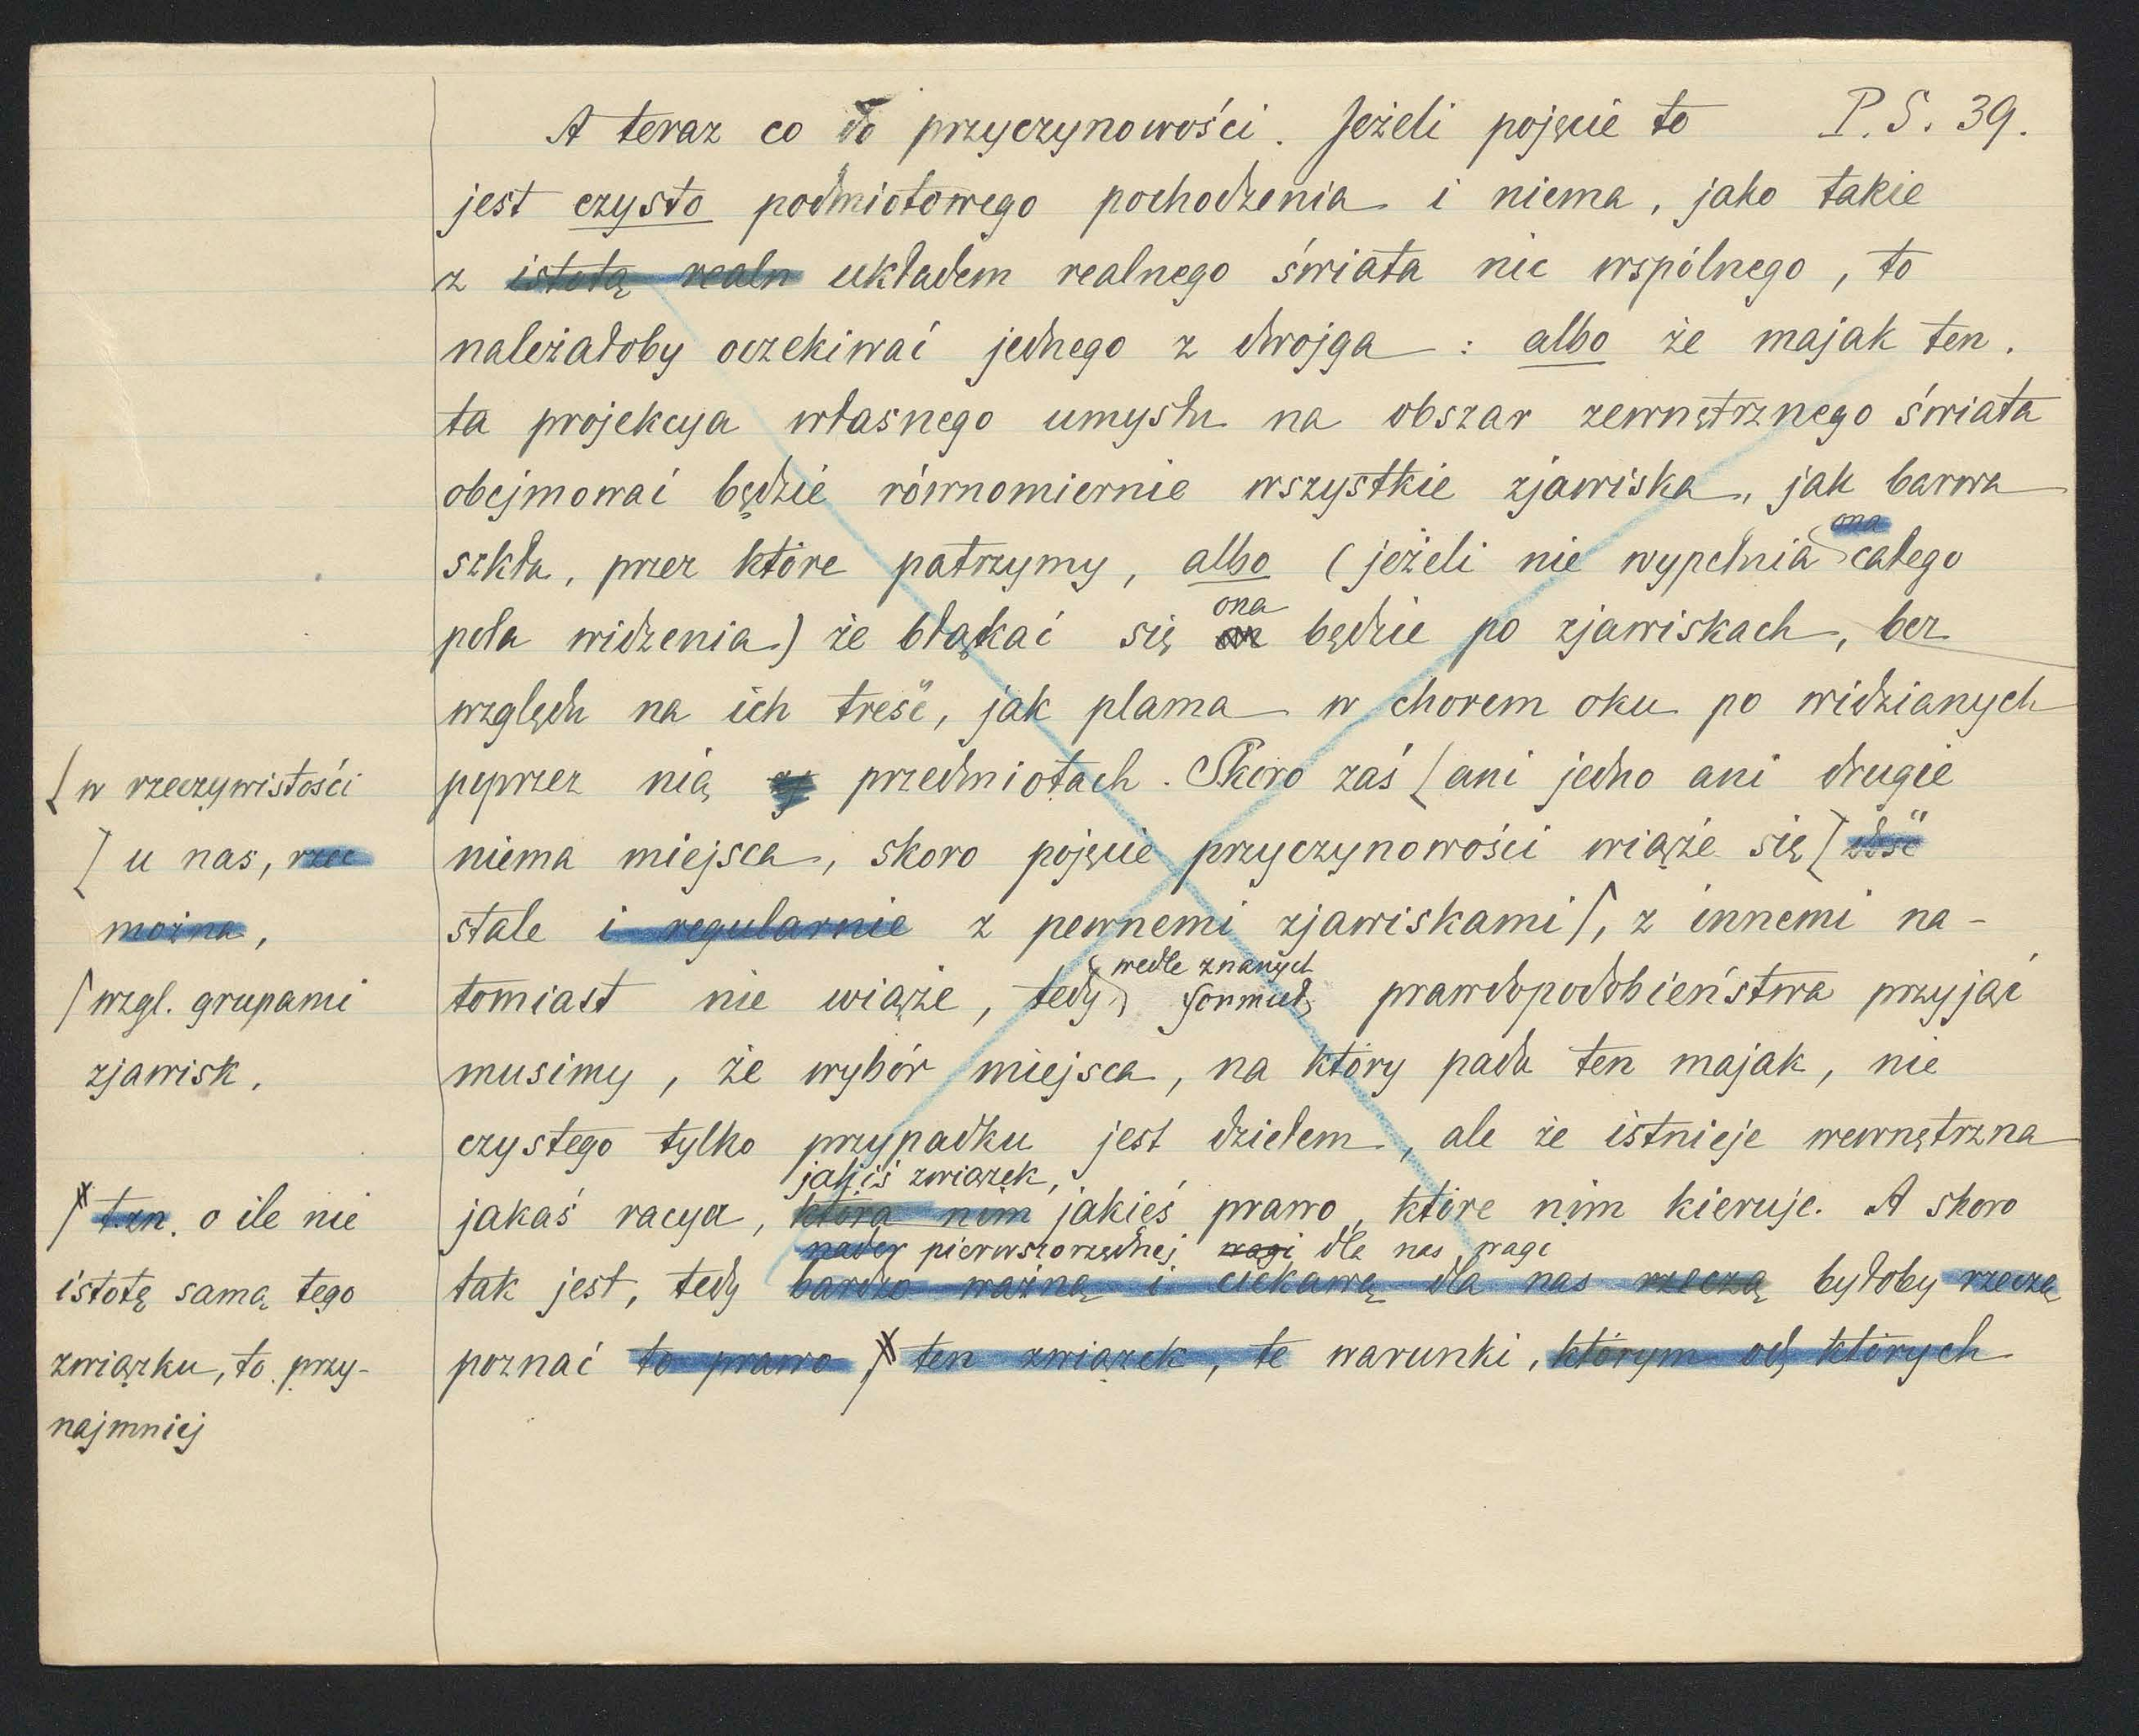 A teraz co do przyczynowości. Jeżeli pojęcie to P.S. 39.
jest czysto podmiotowego pochodzenia i niema, jako takie
z istotą realn układem realnego świata nic wspólnego, to
należałoby oczekiwać jednego z dwojga : albo że majak ten.
ta projekcya własnego umysłu na obszar zewnętrznego świata
obejmować będzie równomiernie wszystkie zjawiska, jak barwa
ona
szkła, przez które patrzymy, albo (jeżeli nie wypełnia całego
ona
pola widzenia) że błąkać się on będzie po zjawiskach, bez
względu na ich treść, jak plama w chorem oku po widzianych
poprzez nią przedmiotach. Skoro zaś [ ani jedno ani drugie
niema miejsca, skoro pojęcie przyczynowości wiąże się [ dość
stale i regularnie z pewnemi zjawiskami ⌈, z innemi na-
wedle znanych
tomiast nie wiąże, tedy formuł prawdopodobieństwa przyjąć
musimy, że wybór miejsca, na który pada ten majak, nie
czystego tylko przypadku jest dziełem, ale że istnieje wewnętrzna
jakiś związek,
jakaś racya, która nim jakieś prawo, które nim kieruje. A skoro
nader pierwszorzędnej wagi dla nas wagi
tak jest, tedy bardzo ważną i ciekawą dla nas rzeczą byłoby rzeczą
poznać to prawo ⌈x ten związek, te warunki, którym od których
[ w rzeczywistości
[ u nas, rzec
można,
⌈ wzgl. grupami
zjawisk.
⌈x t.zn. o ile nie
istotę samą tego
związku, to przy-
najmniej